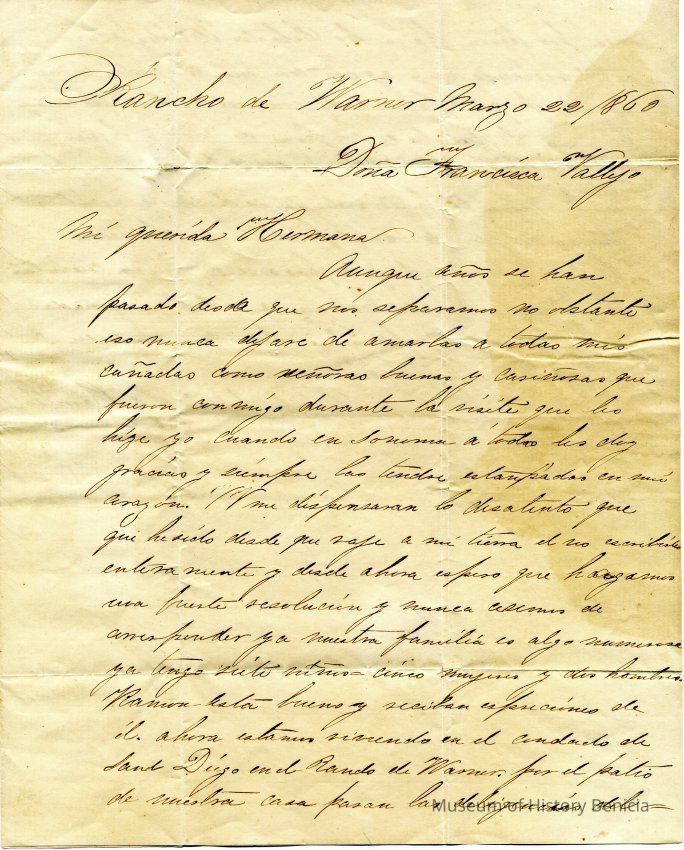 Rancho de Warner Marzo 22/1860
Doña Francisca Vallejo
Mi querida Hermana
Aunque años se han
pasado desde que nos separamos no obstante
eso nunca dejare de amarlas a todas mis
cuñadas como señoras buenas y cariñosas que
fueron conmigo durante la visite que les
hize yo cuando en Sonoma á todas les doy
gracias y siempre las tendre estampadas en mi
corazón. VV me dispensaran lo desatento que
que he sido desde que vaje a mi tierra el no escribirles
enteramente y desde ahora espero que hagamos
una fuerte resolución y nunca cesemos de
corresponder ya nuestra familia es algo numerosa
ya tengo siete niños = cinco mujeres y dos hombres.
Ramon está bueno y reciban espreciones de
él. ahora estamos viviendo en el condado de
San Diego en el Rancho de Warner. por el patio
de nuestra casa pasan las
Museum of History Benicia